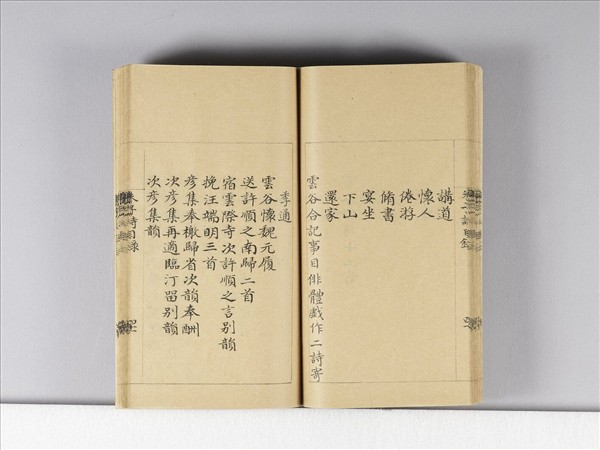 講道
懷人
倦游
脩書
宴坐
下山
還家
雲谷合記事目俳體戲作二詩寄
季通
雲谷懷魏元履
送許順之南歸二首
宿雲際寺次許順之言别韻
挽汪端明三首
彦集奉檄歸省次韻奉酬
次彦集再適臨汀留别韻
次彦集韻